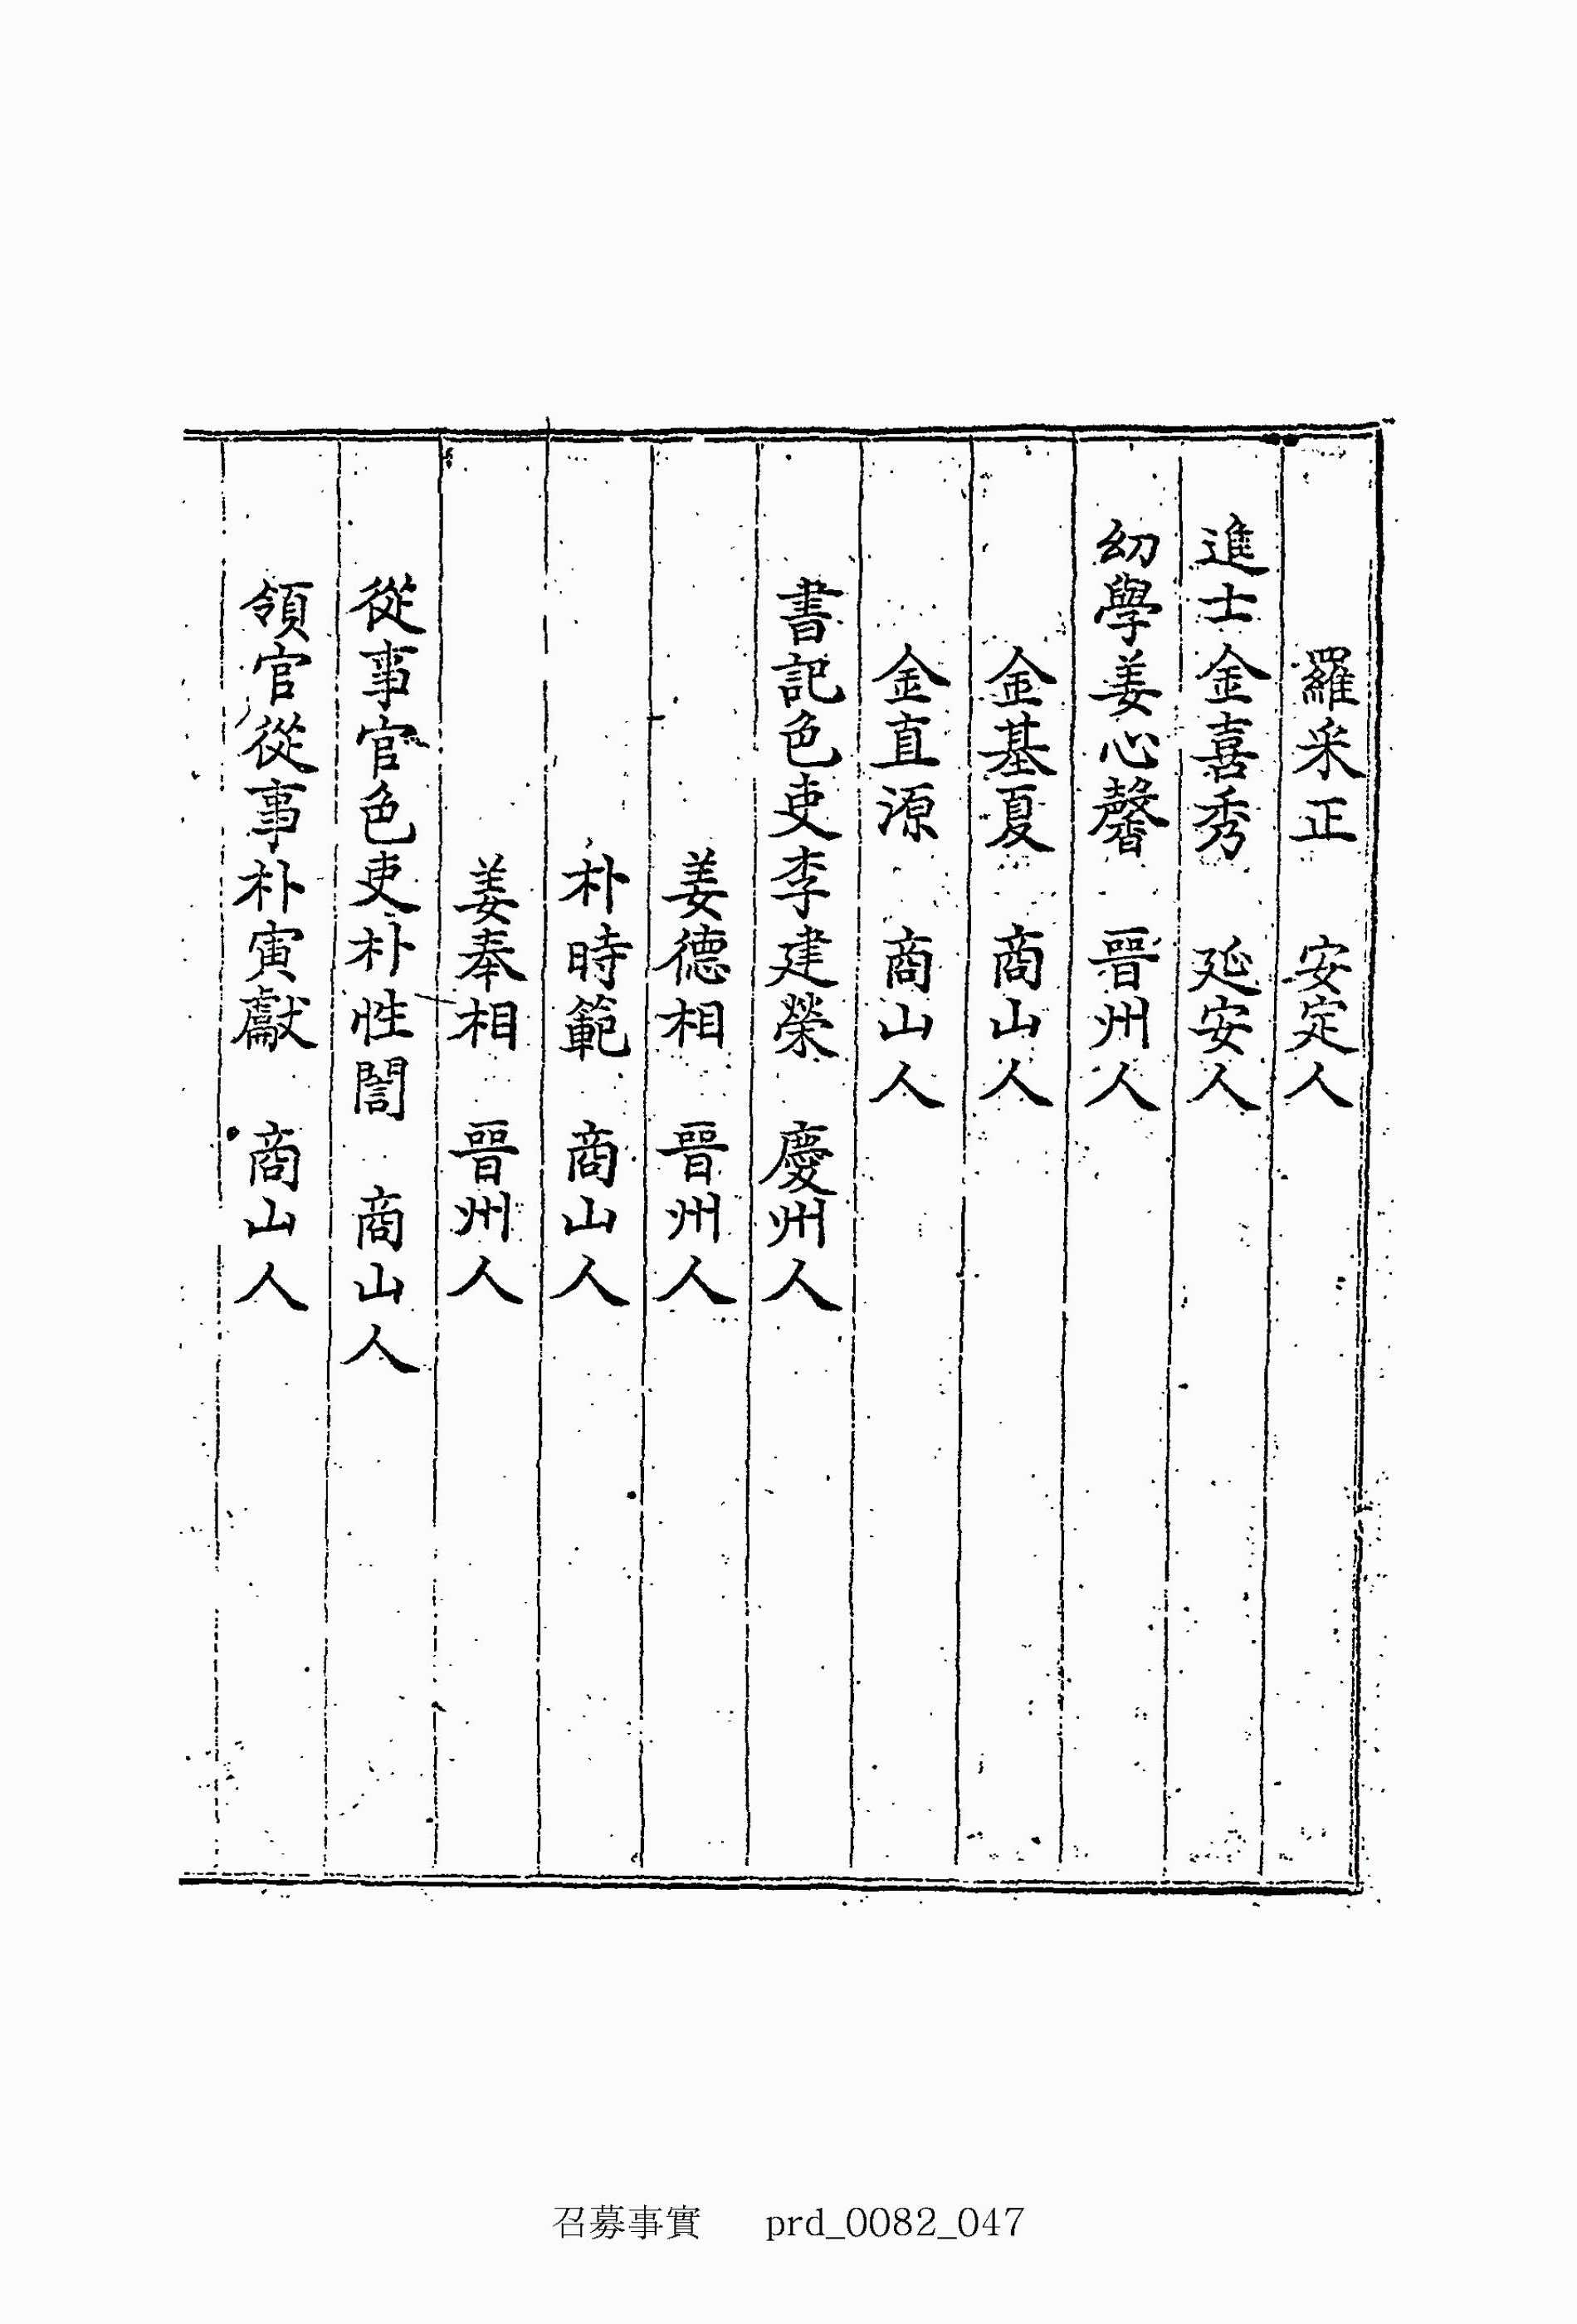 羅采正 安定人
進士金喜秀 延安人
幼學姜心馨 晉州人
金基夏 商山人
金直源 商山人
書記色吏李建榮 慶州人
姜德相 晉州人
朴時範 商山人
姜奉相 晉州人
從事官色吏朴性誾 商山人
領官從事朴寅獻 商山人
召募事實 prd_0082_047